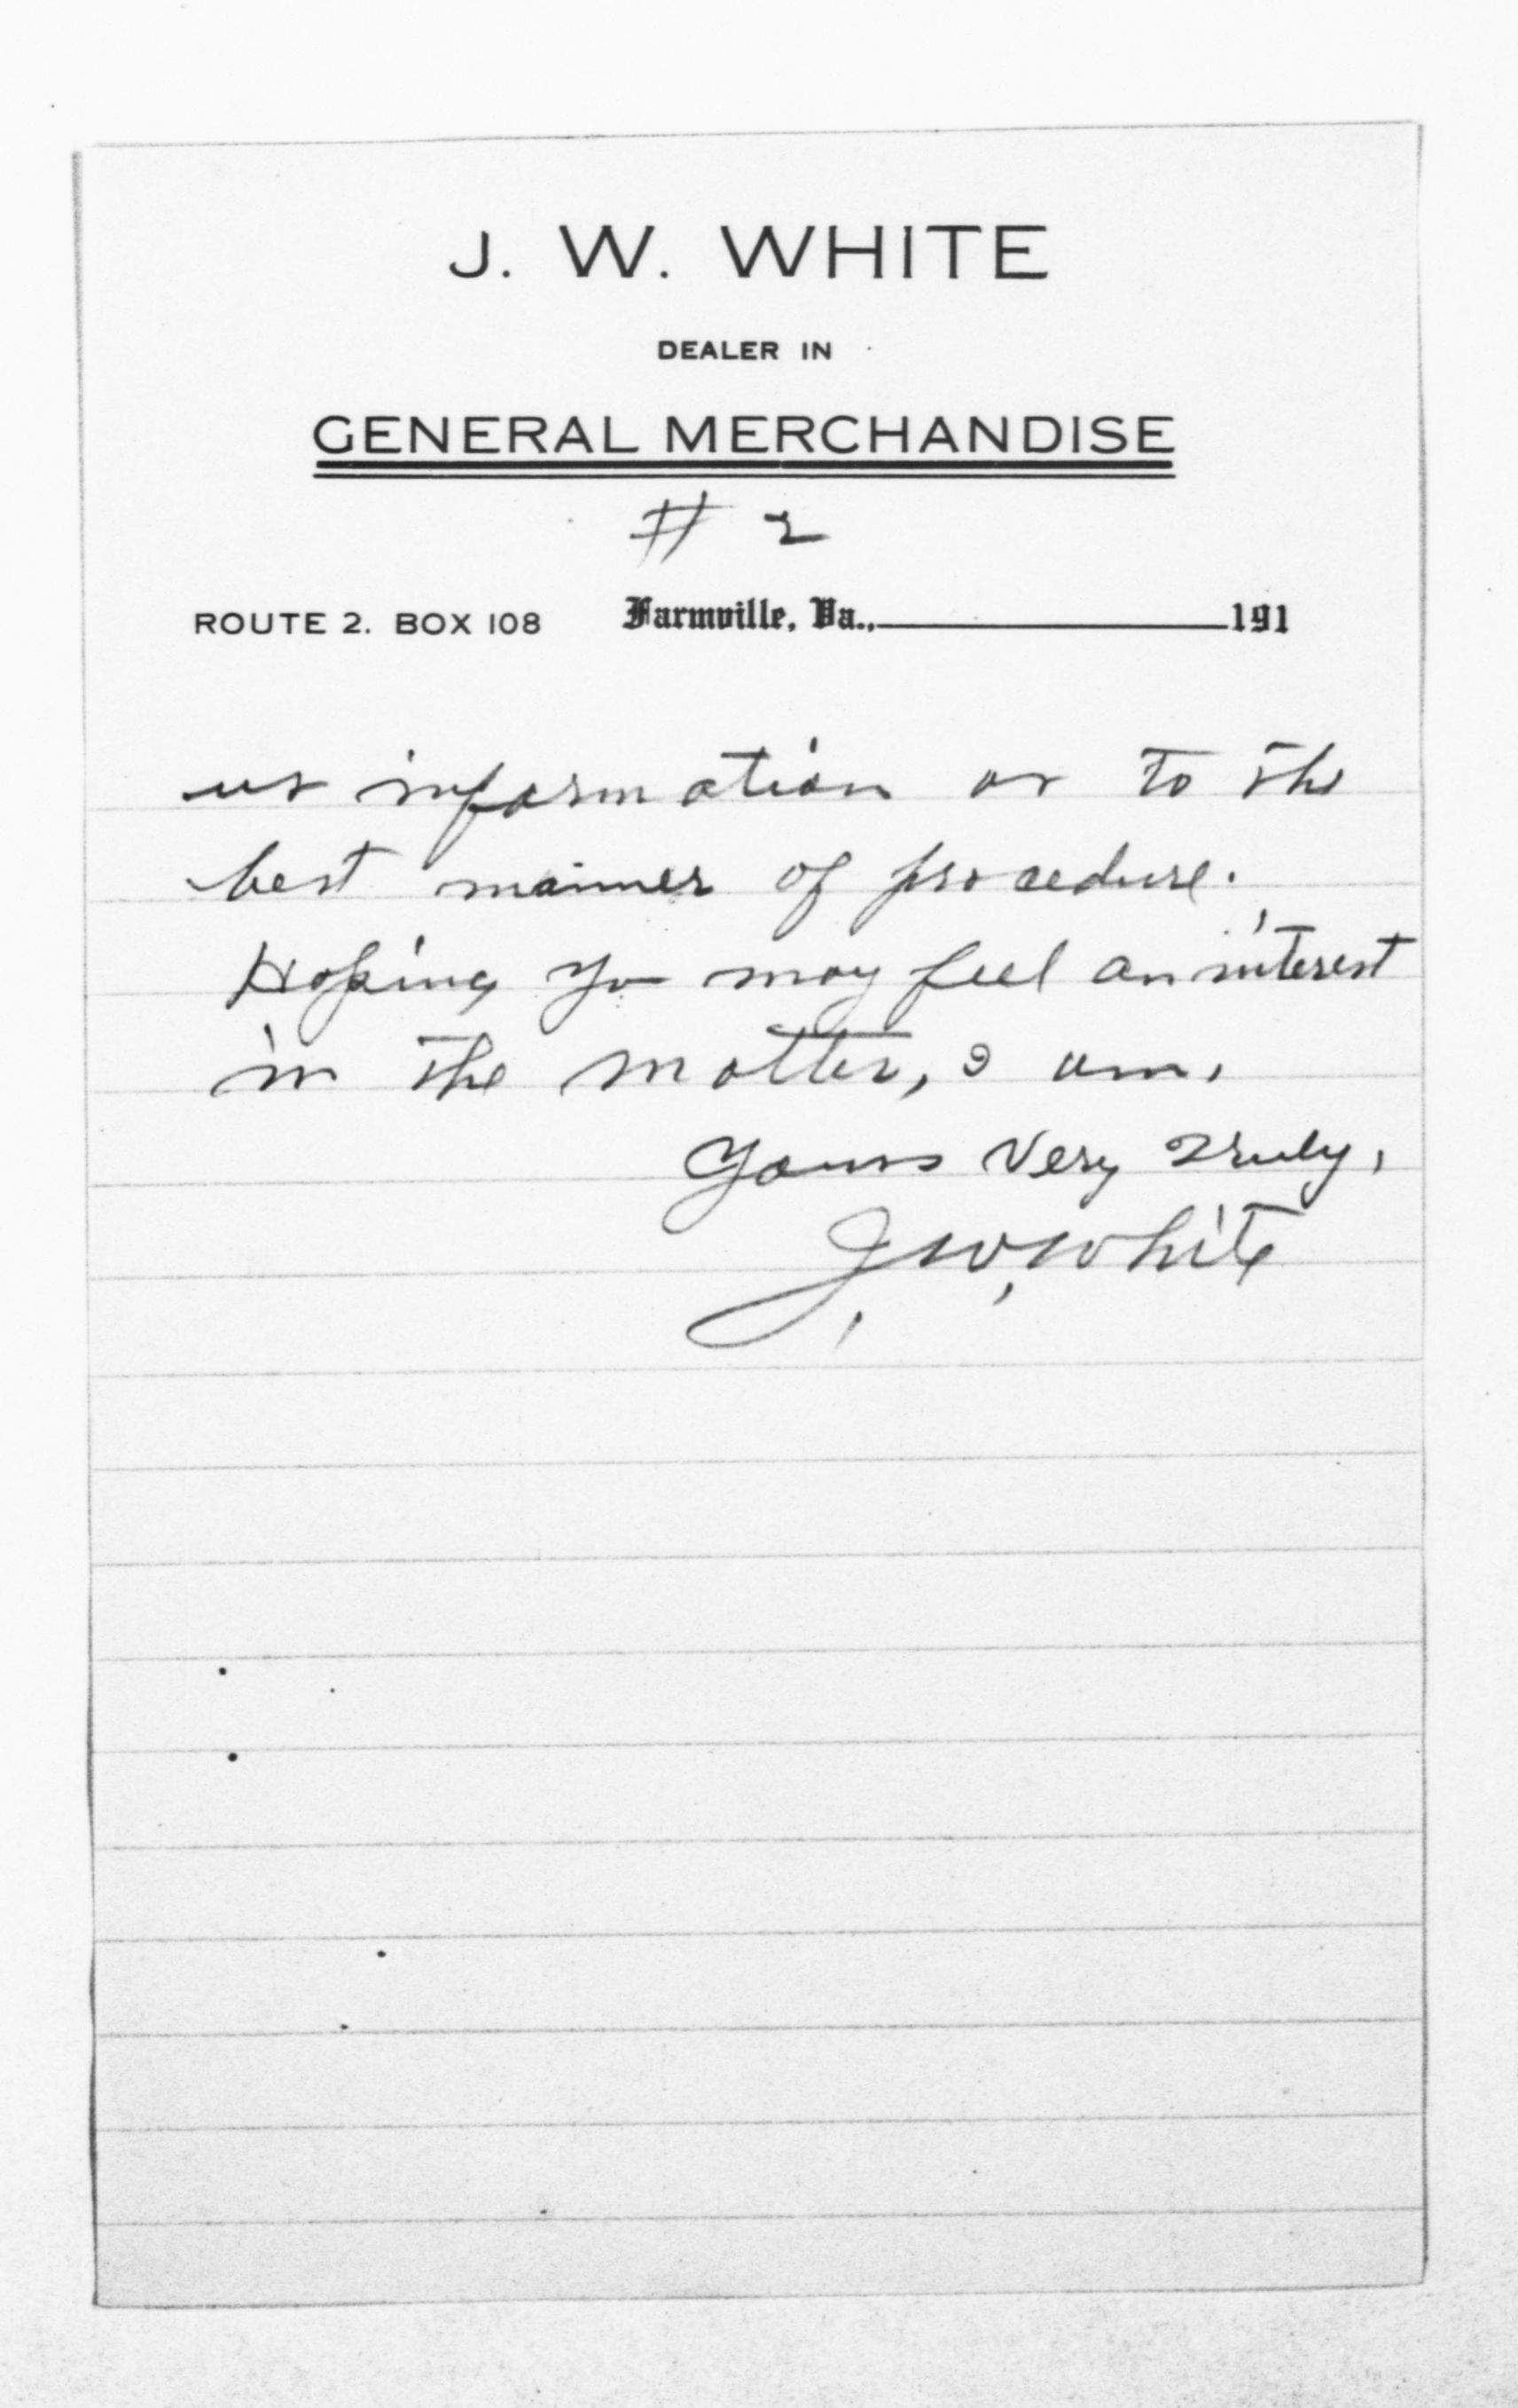 J. W. WHITE
DEALER IN
GENERAL MERCHANDISE
# 2
ROUTE 2. BOX 108 Farmville, Va., 191
us information as to the
best manner of procedure.
Hoping yo may feel an interest
in the matter, I am,
Yours Very Truly,
J. W. White